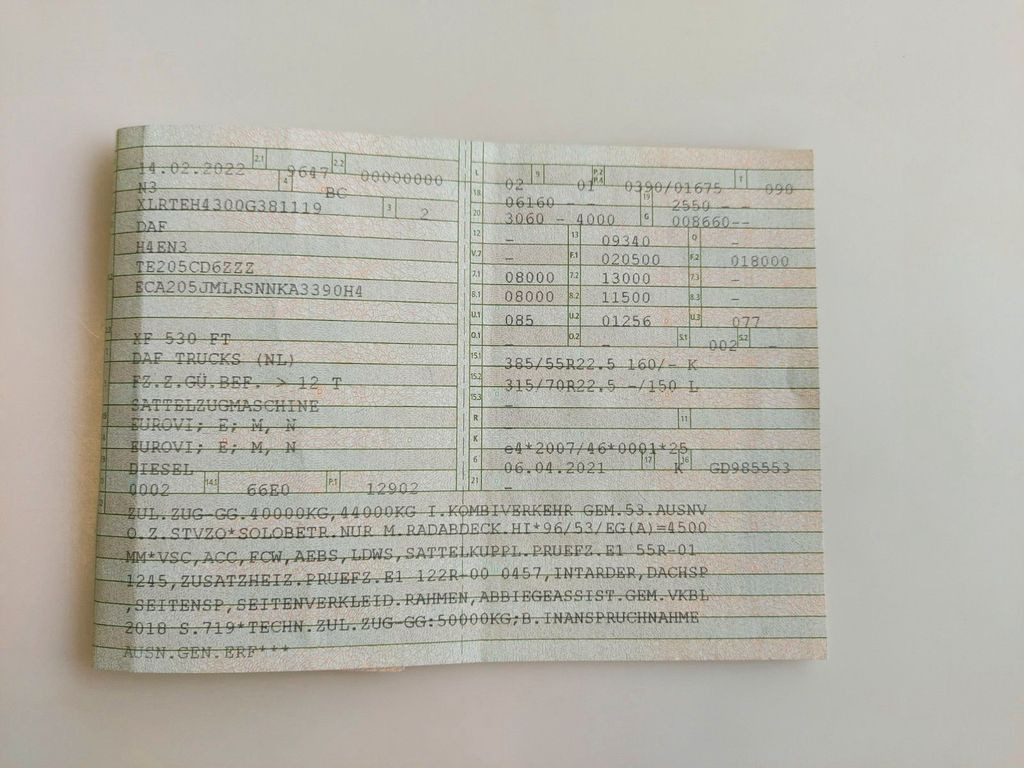 2.1 2.2
14.02.2022 9647 00000000
4
N3 BC
XLRTEH4300G381119 3 2
DAF
H4EN3
TE205CD6ZZZ
ECA205JMLRSNNKA3390H4
XF 530 FT
DAF TRUCKS (NL)
FZ.Z.GÜ.BEF. > 12 T
SATTELZUGMASCHINE
EUROVI; E; M, N
EUROVI; E; M, N
DIESEL
0002 14.1 66E0 P.1 12902
L 9 P.2 P.4 T
02 01 0390/01675 090
18 06160 - - 19 2550 - -
20 3060 - 4000 G 008660--
12 - 13 09340 Q -
V.7 - F.1 020500 F.2 018000
7.1 08000 7.2 13000 7.3 -
8.1 08000 8.2 11500 8.3 -
U.1 085 U.2 01256 U.3 077
O.1 - O.2 - S.1 002 S.2 -
15.1 385/55R22.5 160/- K
15.2 315/70R22.5 -/150 L
15.3 -
R 11
K e4*2007/46*0001*25
6 06.04.2021 17 K 16 GD985553
21 -
ZUL.ZUG-GG.40000KG,44000KG I.KOMBIVERKEHR GEM.53.AUSNV
O.Z.STVZO*SOLOBETR.NUR M.RADABDECK.HI*96/53/EG(A)=4500
MM*VSC,ACC,FCW,AEBS,LDWS,SATTELKUPPL.PRUEFZ.E1 55R-01
1245,ZUSATZHEIZ.PRUEFZ.E1 122R-00 0457,INTARDER,DACHSP
,SEITENSP,SEITENVERKLEID.RAHMEN,ABBIEGEASSIST.GEM.VKBL
2018 S.719*TECHN.ZUL.ZUG-GG:50000KG;B.INANSPRUCHNAHME
AUSN.GEN.ERF***